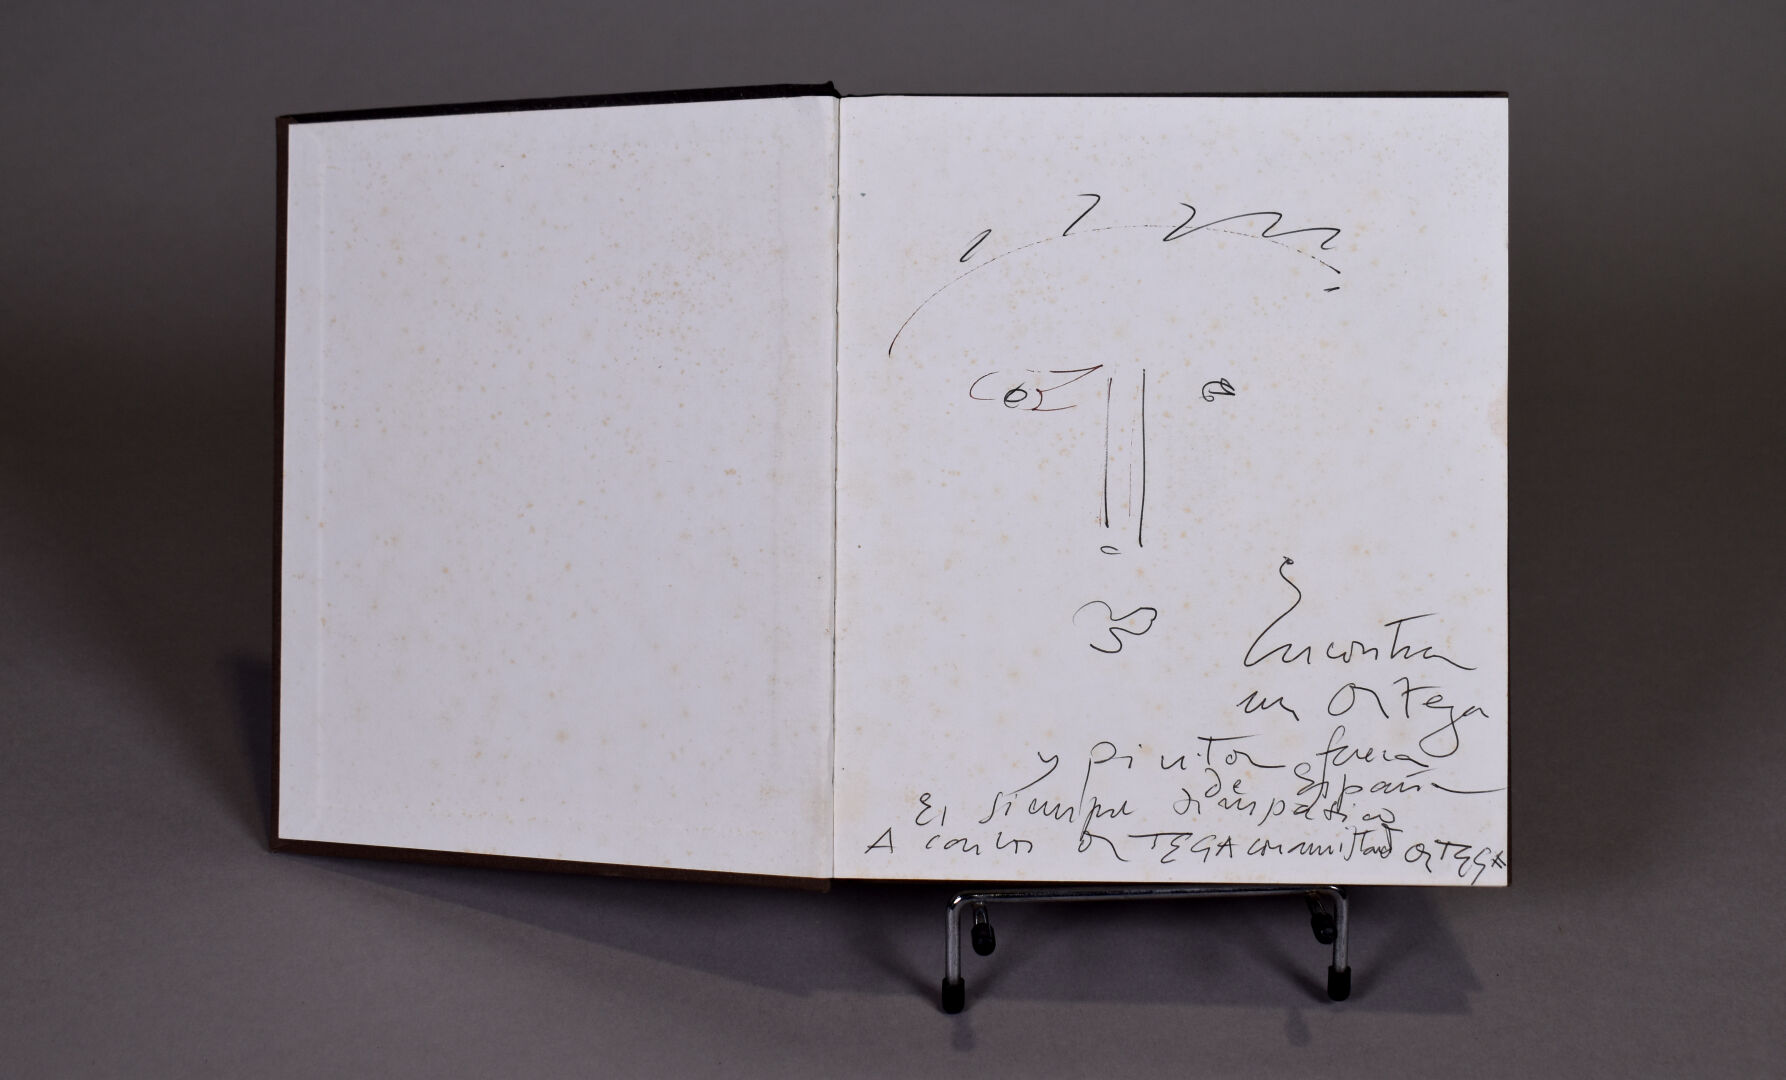 Encontrar
un Ortega
y pintor fuera
de España
Es siempre simpatico
A carlos ORTEGA con amistad ORTEGA